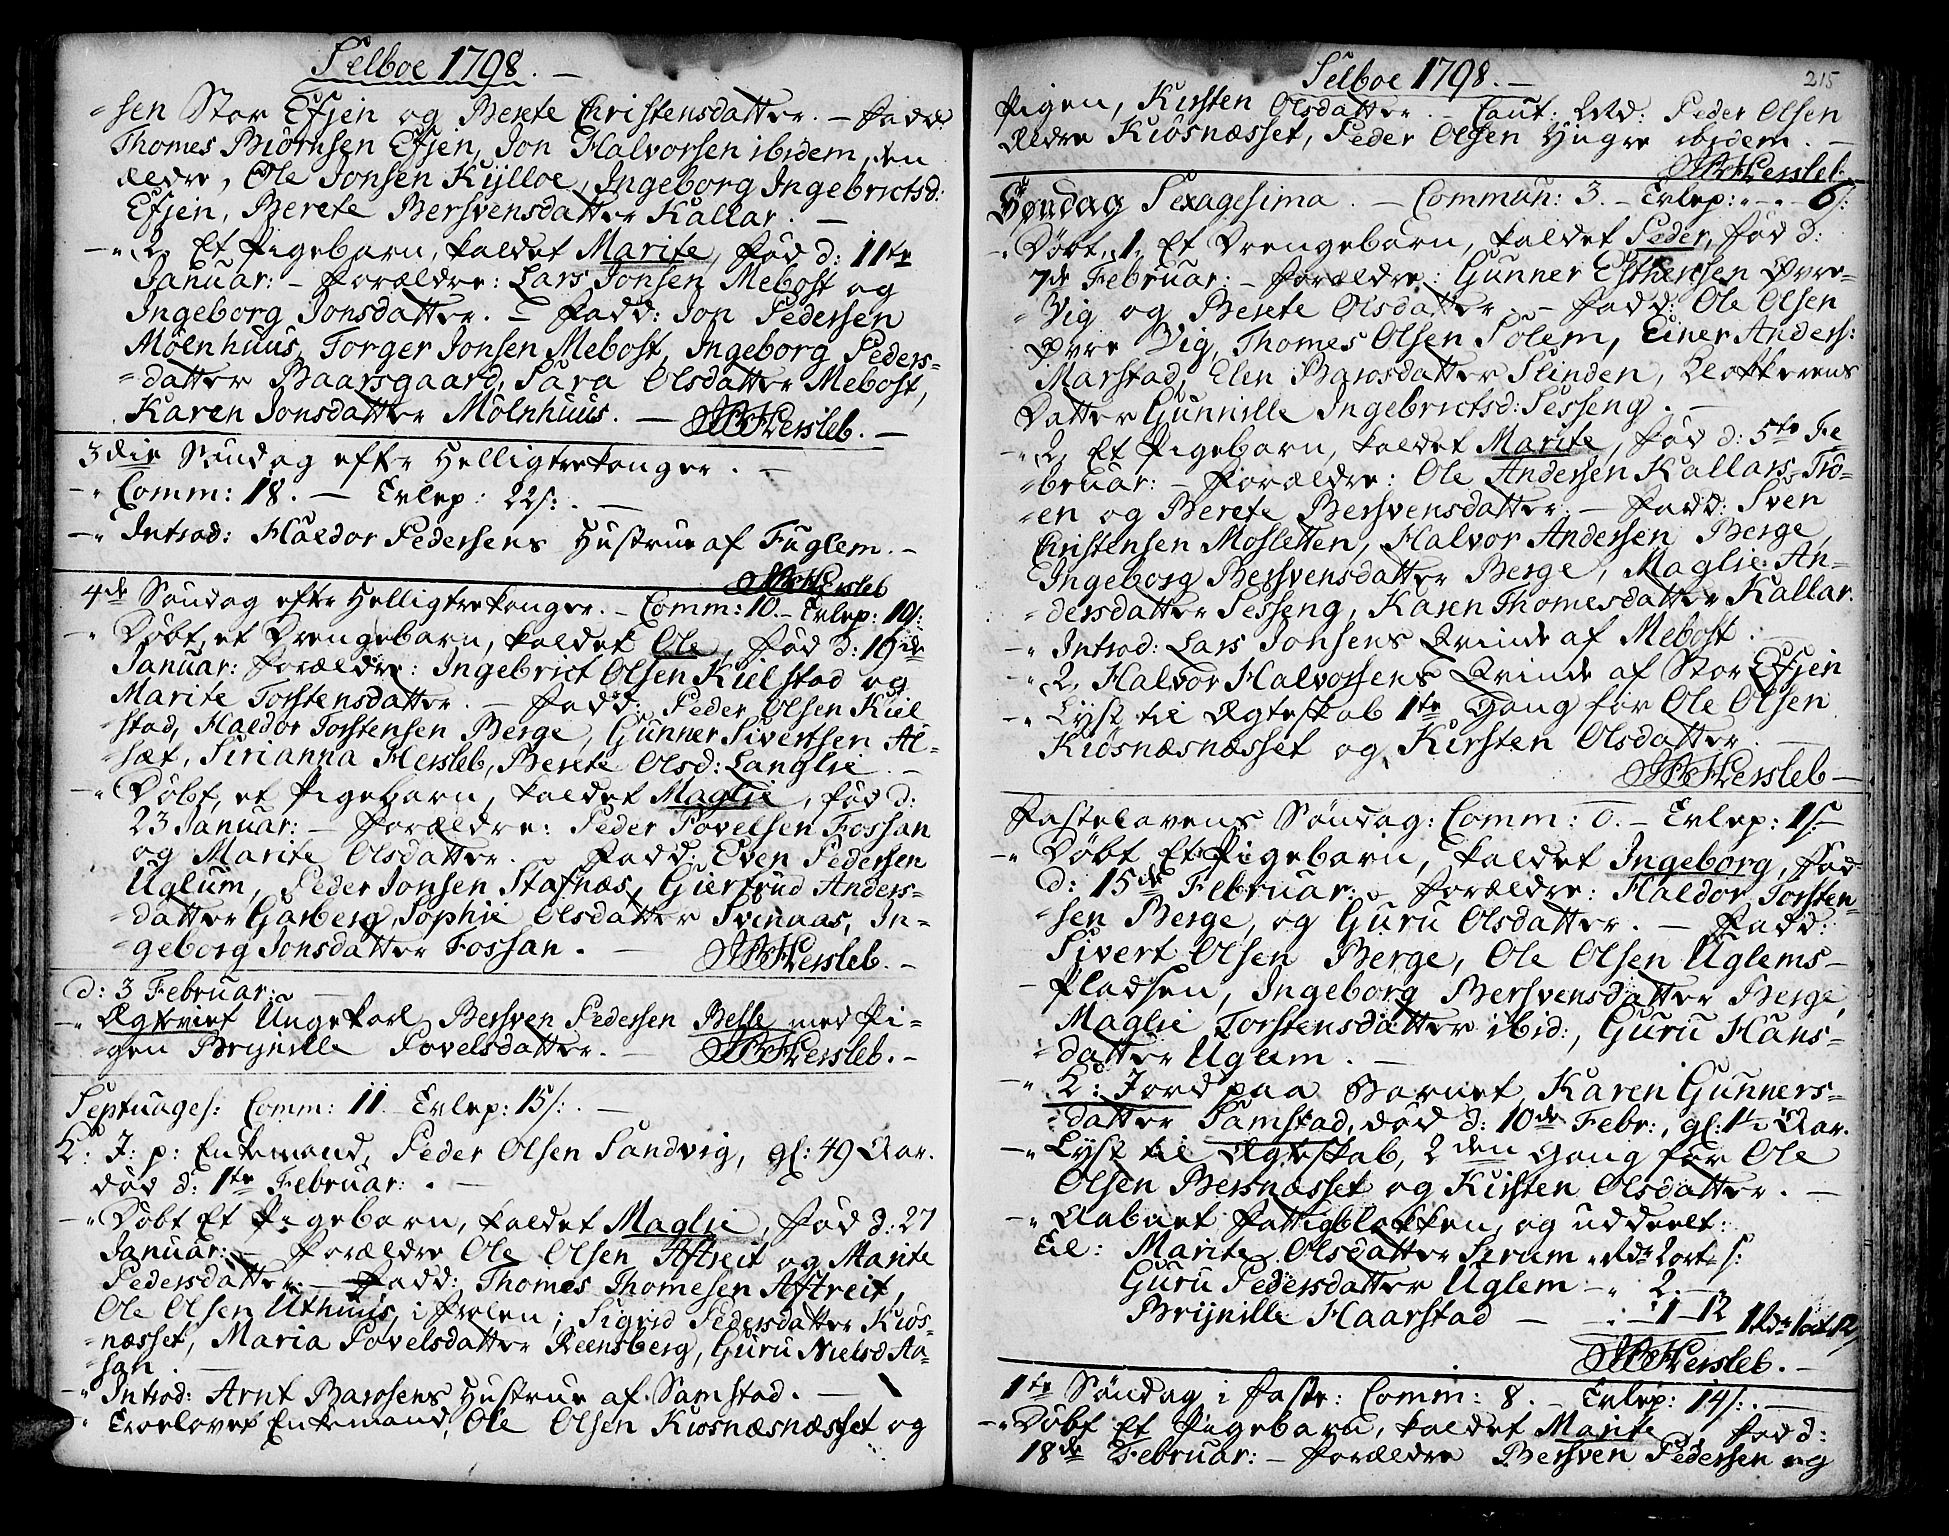 Selboe 1798. —
-sen Stor Efsjen og Berete Christensdatter. — Fadd:
Thomes Biörnsen Efsjen, Jon Halvorsen ibidem, den
ældre, Ole Jonsen Kylloe, Ingeborg Ingebrictsd:
Efsjen, Berete Bersvensdatter Kallar. —
-" 2, Et Pigebarn, kaldet Marite, Fød d: 11te
Januar: — Forældre: Lars Jonsen Mebost og
Ingeborg Jonsdatter. — Fadd: Jon Pedersen
Mölnhuus, Torger Jonsen Mebost, Ingeborg Peders-
-datter Baarsgaard, Sara Olsdatter Mebost,
Karen Jonsdatter Mölnhuus. — Hersleb. —
3die Søndag efter Helligtrekonger. —
-" Comm: 18. — Erlep: 22s:. —
-" Introd: Haldor Pedersens Hustrue af Fuglem. —
Hersleb
4de Søndag efter Helligtrekonger. — Comm: 10. — Erlep: 19s:
-" Døbt, et Drengebarn, kaldet Ole, Fød d: 19de
Januar: Forældre: Ingebrict Olsen Kielstad og
Marite Torstensdatter. — Fadd: Peder Olsen Kiel
stad, Haldor Torstensen Berge, Gunner Sivertsen Al-
-sæt, Sirianna Hersleb, Berete Olsd: Langlie. —
-" Døbt, et Pigebarn, kaldet Maglie, fød d:
23 Januar: — Forældre: Peder Povelsen Fossan
og Marite Olsdatter. — Fadd: Even Pedersen
Uglum, Peder Jonsen Stafnæs, Giertrud Anders-
-datter Garberg, Sophie Olsdatter Svinaas, In-
-geborg Jonsdatter Fossan. — Hersleb. —
d: 3 Februar: —
-" Ægteviet Ungekarl Bersven Pedersen Belle med Pi-
-gen Brynille Povelsdatter. — Hersleb. —
Septuages: Comm: 11. — Erlep: 15s:. —
K: J: p: Enkemand, Peder Olsen Sandvig, gl: 49 Aar.
død d: 1te Februar: . —
-" Døbt Et Pigebarn, kaldet Maglie, Fød d: 27
Januar: — Forældre Ole Olsen Aftreit og Marite
Pedersdatter. — Fadd: Thomes Thomesen Aftreit,
Ole Olsen Uthuus, i Frolen; Sigrid Pedersdatter Kiøs-
-næsset, Maria Povelsdatter Reensberg, Guru Nielsd Aa-
-san. —
-" Introd: Arnt Barosens Hustrue af Samstad. —
" Troelovet Enkemand, Ole Olsen Kiøsnæsnæsset og
215
Selboe 1798. —
Pigen, Kirsten Olsdatter. — Caut: Peder Olsen
Ældre Kiøsnæsset, Peder Olsen Yngre ibidem. —
Hersleb
Søndag Sexagesima. — Commun: 3. — Erlep: 6s:
-" Døbt, 1, Et Drengebarn, kaldet Peder, fød d:
7de Februar: — Forældre: Gunner Esthensen Øvre-
-Vig og Berete Olsdatter. — Fadd: Ole Olsen
Øvre Vig, Thomes Olsen Solem, Einer Anders:
Marstad, Elen Barosdatter Slinden, Klokkerens
Datter Gunnille Ingebrictsd: Sesseng. —
-" 2, Et Pigebarn, kaldet Marite, Fød d: 5te Fe
-bruar: — Forældre: Ole Andersen Kallars-Trø-
-en og Berete Bersvensdatter. — Fadd: Sven
Christensen Mosletten, Halvor Andersen Berge,
Ingeborg Bersvensdatter Berge, Maglie An-
-dersdatter Sesseng, Karen Thomesdatter Kallar.
-" Introd: Lars Jonsens Kvinde af Mebost. —
-" 2, Halvor Halvorsens Kvinde af Stor Efsjen
-" Lyst til Ægteskab 1te Gang for Ole Olsen
Kiøsnæsnæsset og Kirsten Olsdatter. —
Hersleb —
Fastelavens Søndag: Comm: 0. — Erlep: 1s: —
-" Døbt Et Pigebarn, kaldet Ingeborg, Fød
d: 15de Februar: — Forældre: Haldor Torsten-
-sen Berge, og Guru Olsdatter. — Fadd:
Sivert Olsen Berge, Ole Olsen Uglems-
-Pladsen, Ingeborg Bersvensdatter Berge,
Maglie Torstensdatter ibid:, Guru Hans-
-datter Uglem. —
-" K: Jord paa Barnet, Karen Gunners-
-datter Samstad, død d: 10de Febr:, gl: 1½ Aar.
-" Lyst til Ægteskab, 2den Gang for Ole
Olsen Bersnæsset og Kirsten Olsdatter. —
-" Aabnet Fattigblokken, og uddeelt:
Til: Marite Olsdatter Serum " Rdr 2 ort " s:
Guru Pedersdatter Uglem — " 2. —
Brynille Haarstad — " 1 — 12 1 Rdr 1 ort 12s
Hersleb. —
1te Søndag i Faste: Comm: 8. — Erlep: 14s:. —
-" Døbt Et Pigebarn, kaldet Marite, Fød d:
18de Februar: — Forældre Bersven Pedersen og